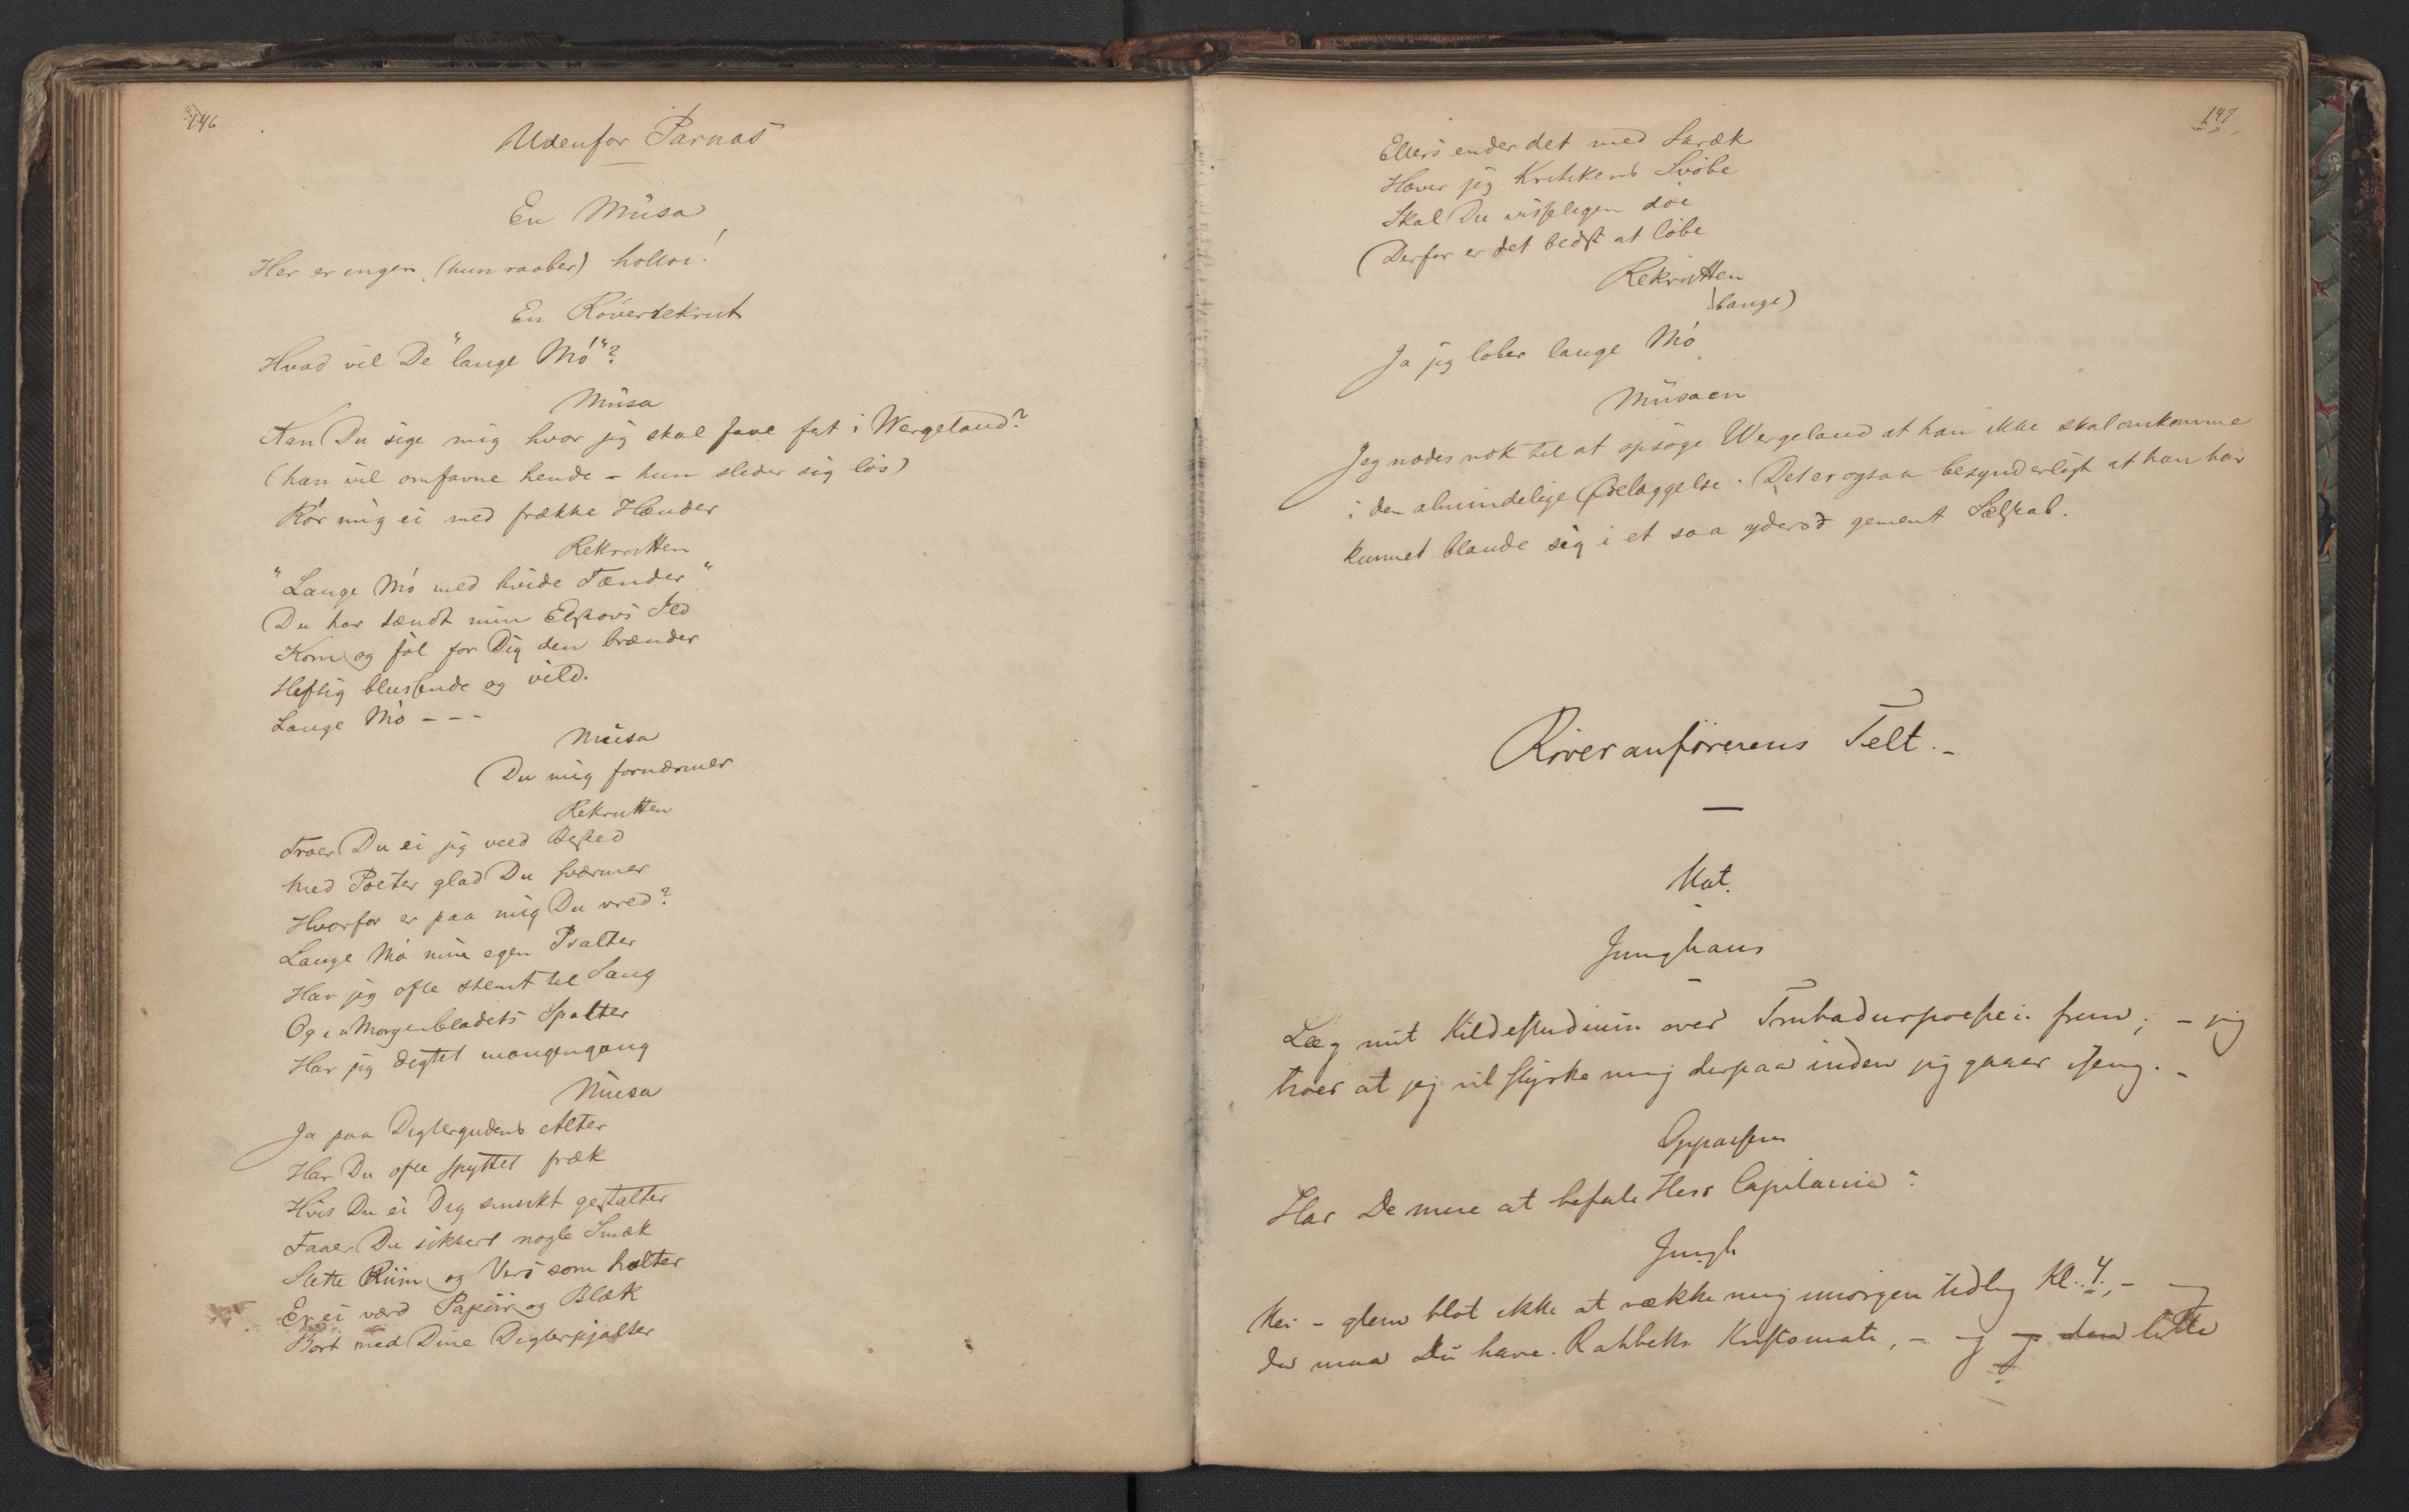 146
Udenfor Parnas
En Müsa
Her er ingen (hun raaber) holloi!
En Röverrekrut
Hvad vil De "lange Mö"?
Müsa
Kan Du sige mig hvor jeg skal faae fat i Wergeland?
(han vil omfavne hende - hun slider sig lös)
Rör mig ei med frække Hænder
Rekrutten
"Lange Mö med hvide Tænder"
Du har tændt min Elskovs Ild
Kom og föl for Dig den brænder
Heftig blussende og vild.
Lange Mö - - -
Müsa
Du mig fornærmer
Rekrutten
Troer Du ei jeg veed Besked
Med Poeter glad Du sværmer
Hvorfor er paa mig Du vred?
Lange Mö min egen Psalter
Har jeg ofte stemt til Sang
Og i Morgenbladets Spalter
Har jeg digtet mangengang
Müsa
Ja paa Digtergudens Alter
Har Du ofte spyttet fræk
Hvis Du ei Dig smukt gestalter
Faaer Du sikkert nogle Smæk
Slette Riim og Vers som halter
Er ei værd Papiir og Blæk
Bort med Dine Digterpjalter
147
Ellers ender det med Skræk
Hæver jeg Kritikens Svöbe
Skal Du visseligen döe
Derfor er det bedst at löbe
Rekrutten
(bange)
Ja jeg löber lange Mö
Müsaen
Jeg nödes nok til at opsöge Wergeland at han ikke skal omkomme
i den almindelige Ödelæggelse. Det er ogsaa besynderligt at han har
kunnet blande sig i et saa yderst gement Selskab.
Röveranförerens Telt. -
Nat.
Junghans
Læg mit Kildestudium over Trubadurpoesien frem; - jeg
troer at jeg vil styrke mig derpaa inden jeg gaaer iseng. -
Oppasseren
Har De mere at befale Herr Capitaine?
Jungh
Nei - glem blot ikke at vække mig imorgen tidlig Kl. 4, - og
da maa Du have Rahbeks
 - og og den lille